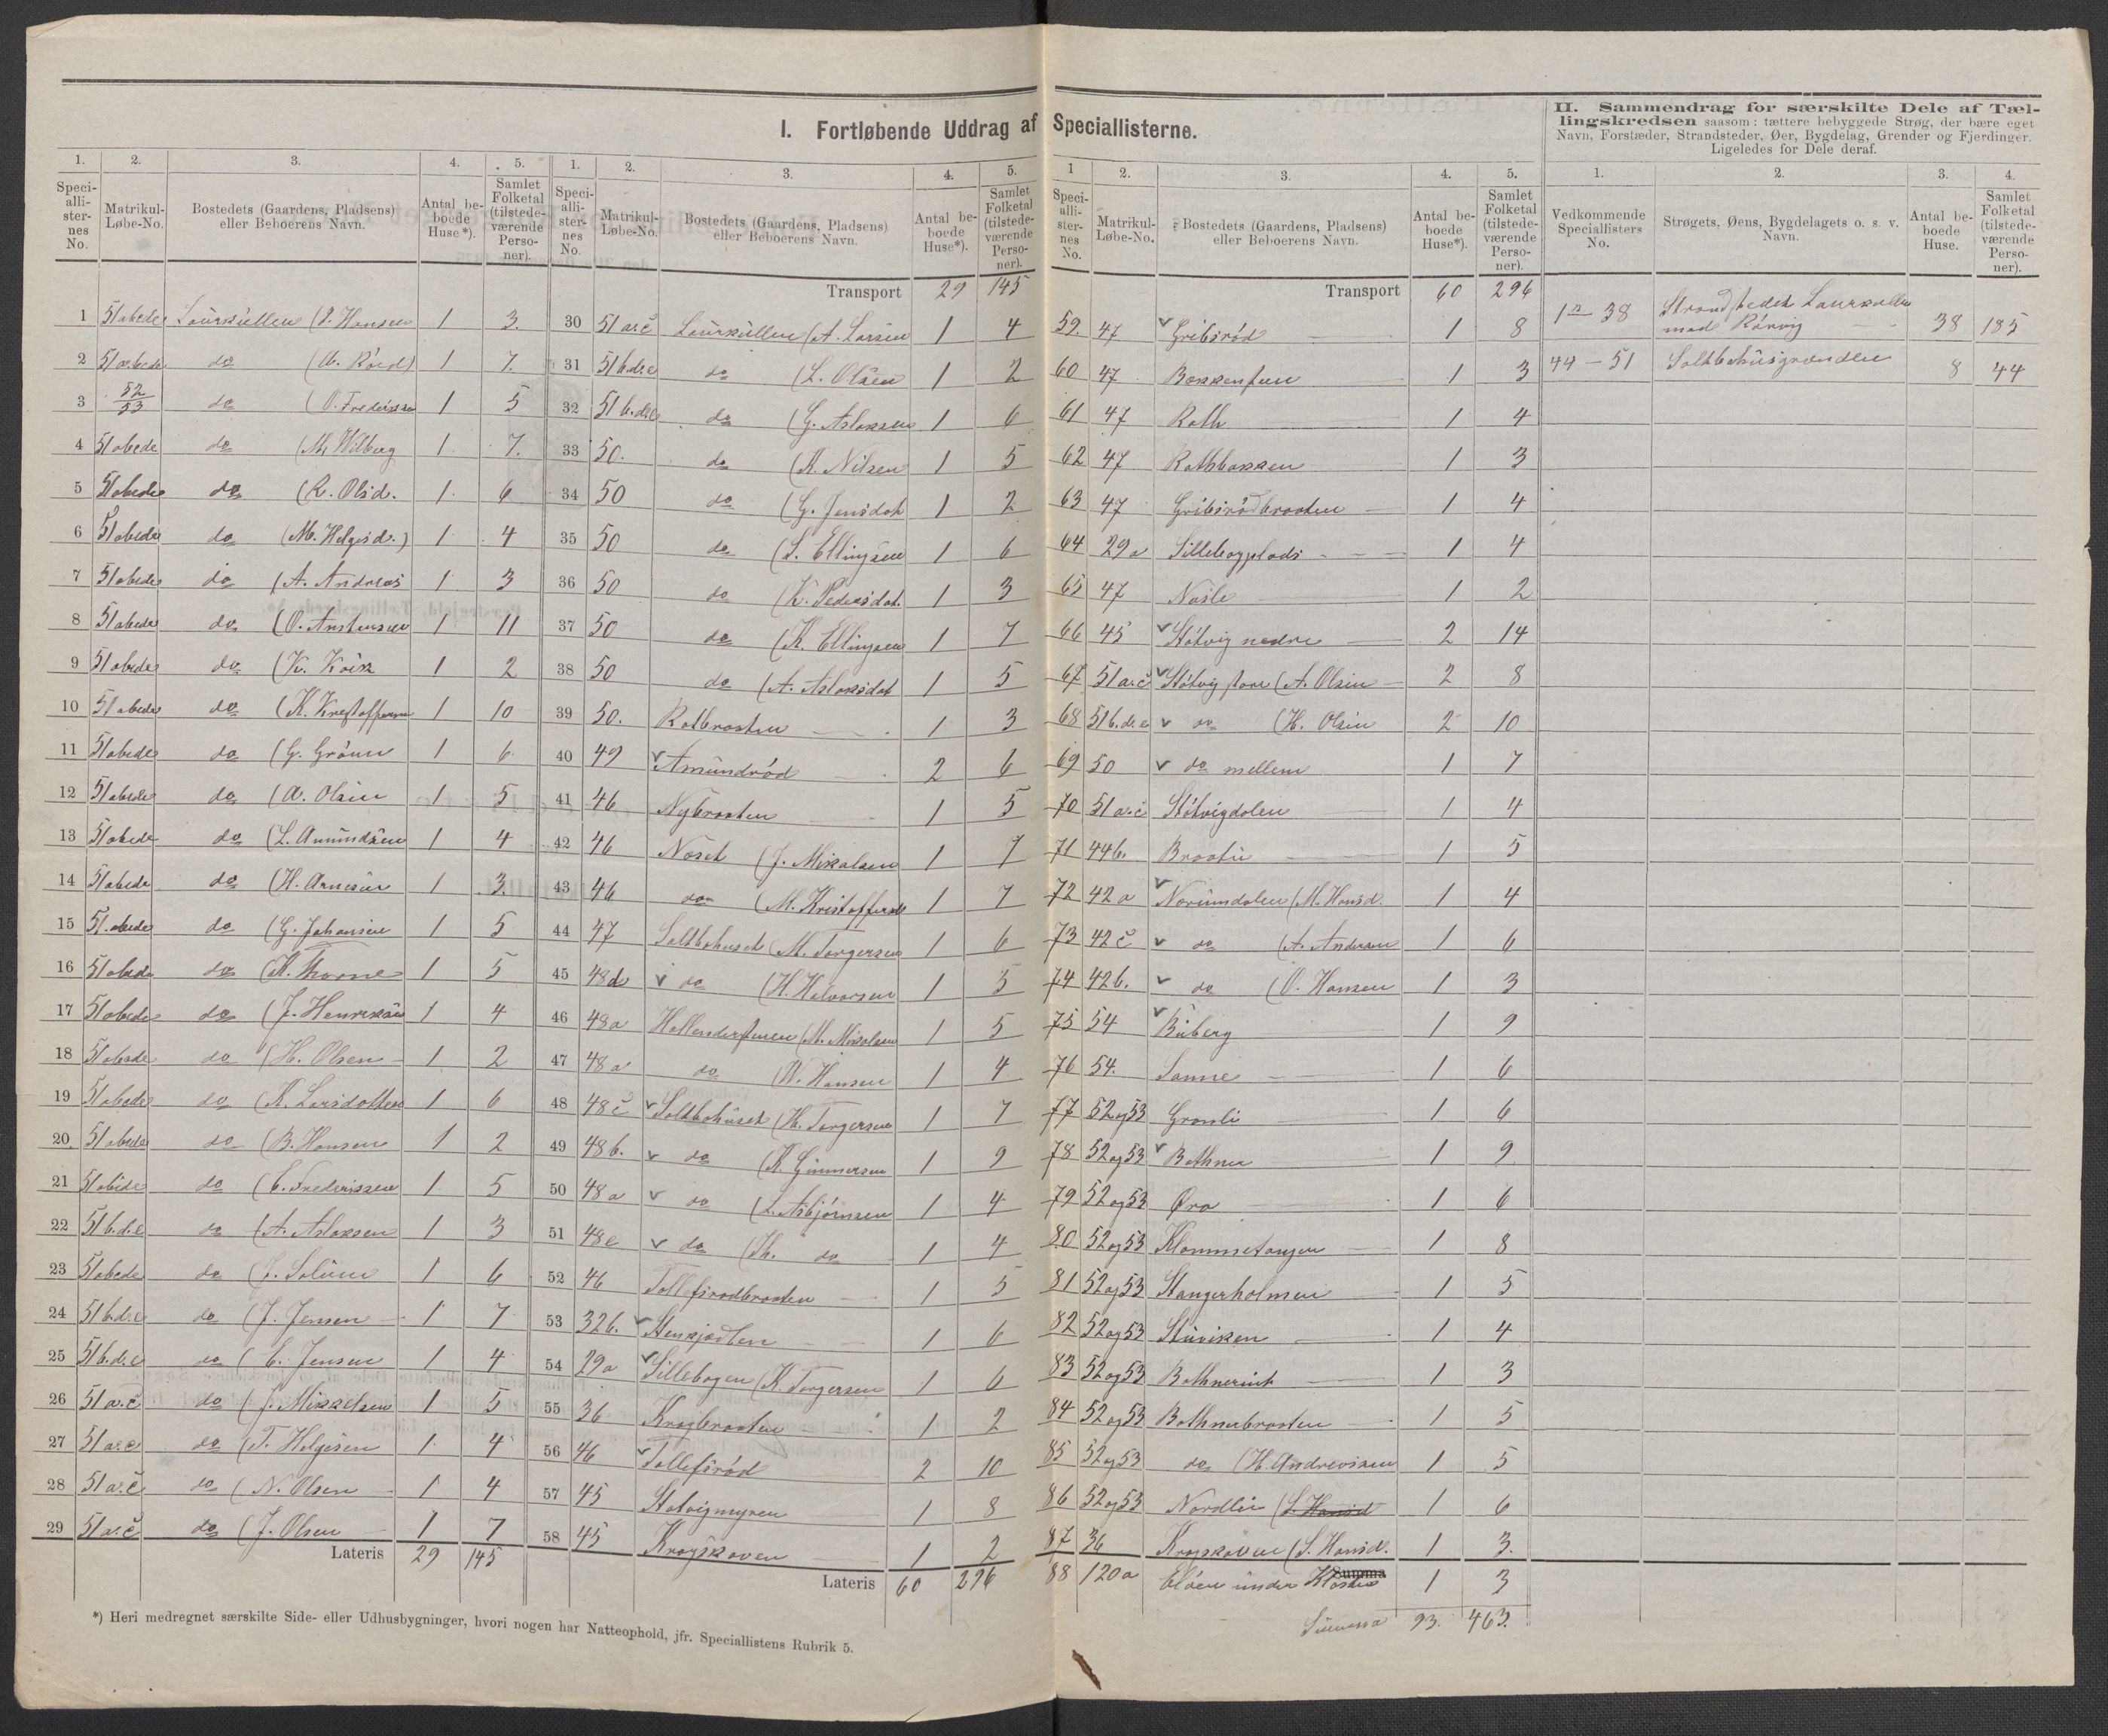 I. Fortløbende Uddrag af Speciallisterne.
1. 2. 3. 4. 5.
Speci-alli-ster-nes No. Matrikul-Løbe-No. Bostedets (Gaardens, Pladsens) eller Beboerens Navn. Antal be-boede Huse*). Samlet Folketal (tilstede-værende Perso-ner).
1 51abcde Laurkullen (P. Hansen 1 3.
2 51abcde do (A. Röed) 1 7.
3 52/53 do (O. Fredrikss 1 5
4 51abcde do (M. Wilberg 1 7.
5 51abcde do (R. Olsd. 1 6
6 51abcde do (M. Helgesd.) 1 4
7 51abcde do (A. Andreas 1 3
8 51abcde do (O. Anstensen 1 11
9 51abcde do (K. Koik 1 2
10 51abcde do (K. Kristoffersen 1 10
11 51abcde do (G. Grönn 1 6
12 51abcde do (A. Olsen 1 5
13 51abcde do (L. Amundsen 1 4
14 51abcde do (H. Arnesen 1 3
15 51.abcde do (G. Johansen 1 5
16 51abcde do (K. Thorne 1 5
17 51abcde do (J. Henriksen 1 4
18 51abcde do (H. Olsen 1 2
19 51abcde do (K. Larsdatter 1 6
20 51abcde do (B. Hansen 1 2
21 51abcde do (E. Frederiksen 1 5
22 51b.d.e do (A. Aslaksen 1 3
23 51abcde do (J. Solum 1 6
24 51b.d.e do (J. Jensen 1 7
25 51b.d.e do (E. Jensen 1 4
26 51a.c do (J. Mikkelsen 1 5
27 51a.c do (T. Helgesen 1 4
28 51a.c do (N. Olsen 1 4
29 51a.c do (J. Olsen 1 7
Lateris 29 145
1. 2. 3. 4. 5.
Speci-alli-ster-nes No. Matrikul-Løbe-No. Bostedets (Gaardens, Pladsens) eller Beboerens Navn. Antal be-boede Huse*). Samlet Folketal (tilstede-værende Perso-ner).
Transport 29 145
30 51a.c Laurkullen (A. Larsen 1 4
31 51b.d.e do (L. Olsen 1 2
32 51b.d.e do (G. Aslaksen 1 6
33 50. do (K. Nilsen 1 5
34 50 do (G. Jensdat 1 2
35 50 do (S. Ellingsen 1 6
36 50 do (K. Pedersdat. 1 3
37 50 do (K. Ellingsen 1 7
38 50 do (A. Aslaksdat 1 5
39 50. Rolbraaten 1 3
40 49 Amundröd 2 6
41 46 Nybraaten 1 5
42 46 Næset (J. Mikalsen 1 7
43 46 do (M. Kristoffersd 1 7
44 47 Saltbohuset (M. Torgersen 1 6
45 48d do (H. Halvorsen 1 5
46 48a (M. Mikalsen 1 5
47 48a do (N. Hansen 1 4
48 48c Saltbohuset (H. Torgersen 1 7
49 48b. do (K. Gunnersen 1 9
50 48a do (L. Asbjörnsen 1 4
51 48e do (Th. do 1 4
52 46 Tollefsrødbraaten 1 5
53 32b. 1 6
54 29a Sillebogen (K. Torgersen 1 6
55 36 Krogbraaten 1 2
56 46 Tollefsröd 2 10
57 45 Støtvigmyren 1 8
58 45 Krogskoven 1 2
Lateris 60 296
*) Heri medregnet særskilte Side- eller Udhusbygninger, hvori nogen har Natteophold, jfr. Speciallistens Rubrik 5.
1 2. 3. 4. 5.
Speci-alli-ster-nes No. Matrikul-Løbe-No. Bostedets (Gaardens, Pladsens) eller Beboerens Navn. Antal be-boede Huse*). Samlet Folketal (tilstede-værende Perso-ner).
Transport 60 296
59. 47 Gribsröd 1 8
60 47 1 3
61 47 Roth 1 4
62 47 Rothbakken 1 3
63 47 Gribsrödbraaten 1 4
64 29a Sillebogplads 1 4
65 47 Nasle 1 2
66 45 Støtvig nedre 2 14
67 51a.c Støtvig store (A. Olsen 2 8
68 51b.d.e do (H. Olsen 2 10
69 50 do mellem 1 7
70 51a.c Støtvigdalen 1 4
71 44b. Braaten 1 5
72 42a Norumdalen (M. Hansd. 1 4
73 42c do (A. Andersen 1 6
74 42b. do (O. Hansen 1 3
75 54 Buberg 1 9
76 54. Sanne 1 6
77 52og53 Granli 1 6
78 52og53 Bothner 1 9
79 52og53 Øra 1 6
80 52og53 Klommetangen 1 8
81 52og53 Stangerholmen 1 5
82 52og53 Stuviken 1 4
83 52og53 1 3
84 52og53 Bothnerbraaten 1 5
85 52og53 do (H. Andreassen 1 5
86 52og53 Nordlie (L. Hansd 1 6
87 36 Krogskoven (S. Hansd. 1 3.
88 120a Eløen under Kloster 1 3
Summa
Summa 93. 463.
II. Sammendrag for særskilte Dele af Tæl-
lingskredsen saasom: tættere bebyggede Strøg, der bære eget
Navn, Forstæder, Strandsteder, Øer, Bygdelag, Grender og Fjerdinger.
Ligeledes for Dele deraf.
1. 2. 3. 4.
Vedkommende Speciallisters No. Strøgets, Øens, Bygdelagets o. s. v. Navn. Antal be-boede Huse. Samlet Folketal (tilstede-værende Perso-ner).
1 - 38 Strandstedet Laurkullen
med Rörvig 38 185
44 - 51 Saltbohusgrændsen 8 44